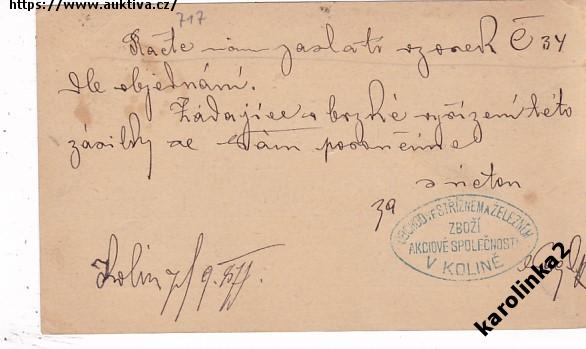 https://www.auktiva.cz/
717
Račte nám zaslati vzorek Č 34
dle objednání.
Žádajíce o brzké vyřízení této
zásilky se Vám poroučíme
s úctou
za
OBCHOD SE STŘIŽNÍM A ŽELEZNÝM
ZBOŽÍ
AKCIOVÉ SPOLEČNOSTI
V KOLÍNĚ
Kolín 9.
karolinka2